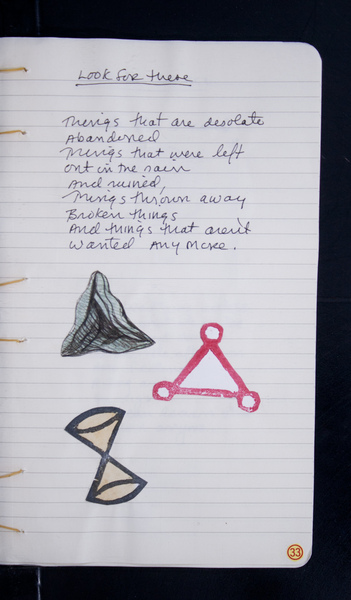 Look for these
Things that are desolate
Abandoned
Things that were left
out in the rain
And ruined,
Things thrown away
Broken things
And things that aren't
wanted Any More.
33